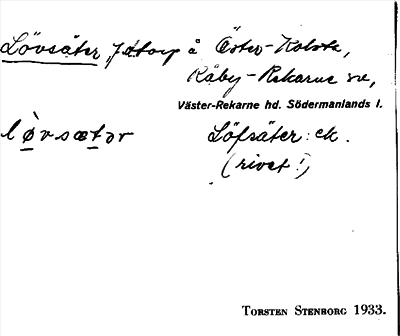 Lövsäter, f.d. torp å Öster-Kolsta,
Råby-Rekarne sn,
Väster-Rekarne hd. Södermanlands l.
lø̀vsætər Löfsäter: ek.
(rivet!)
TORSTEN STENBORG 1933.